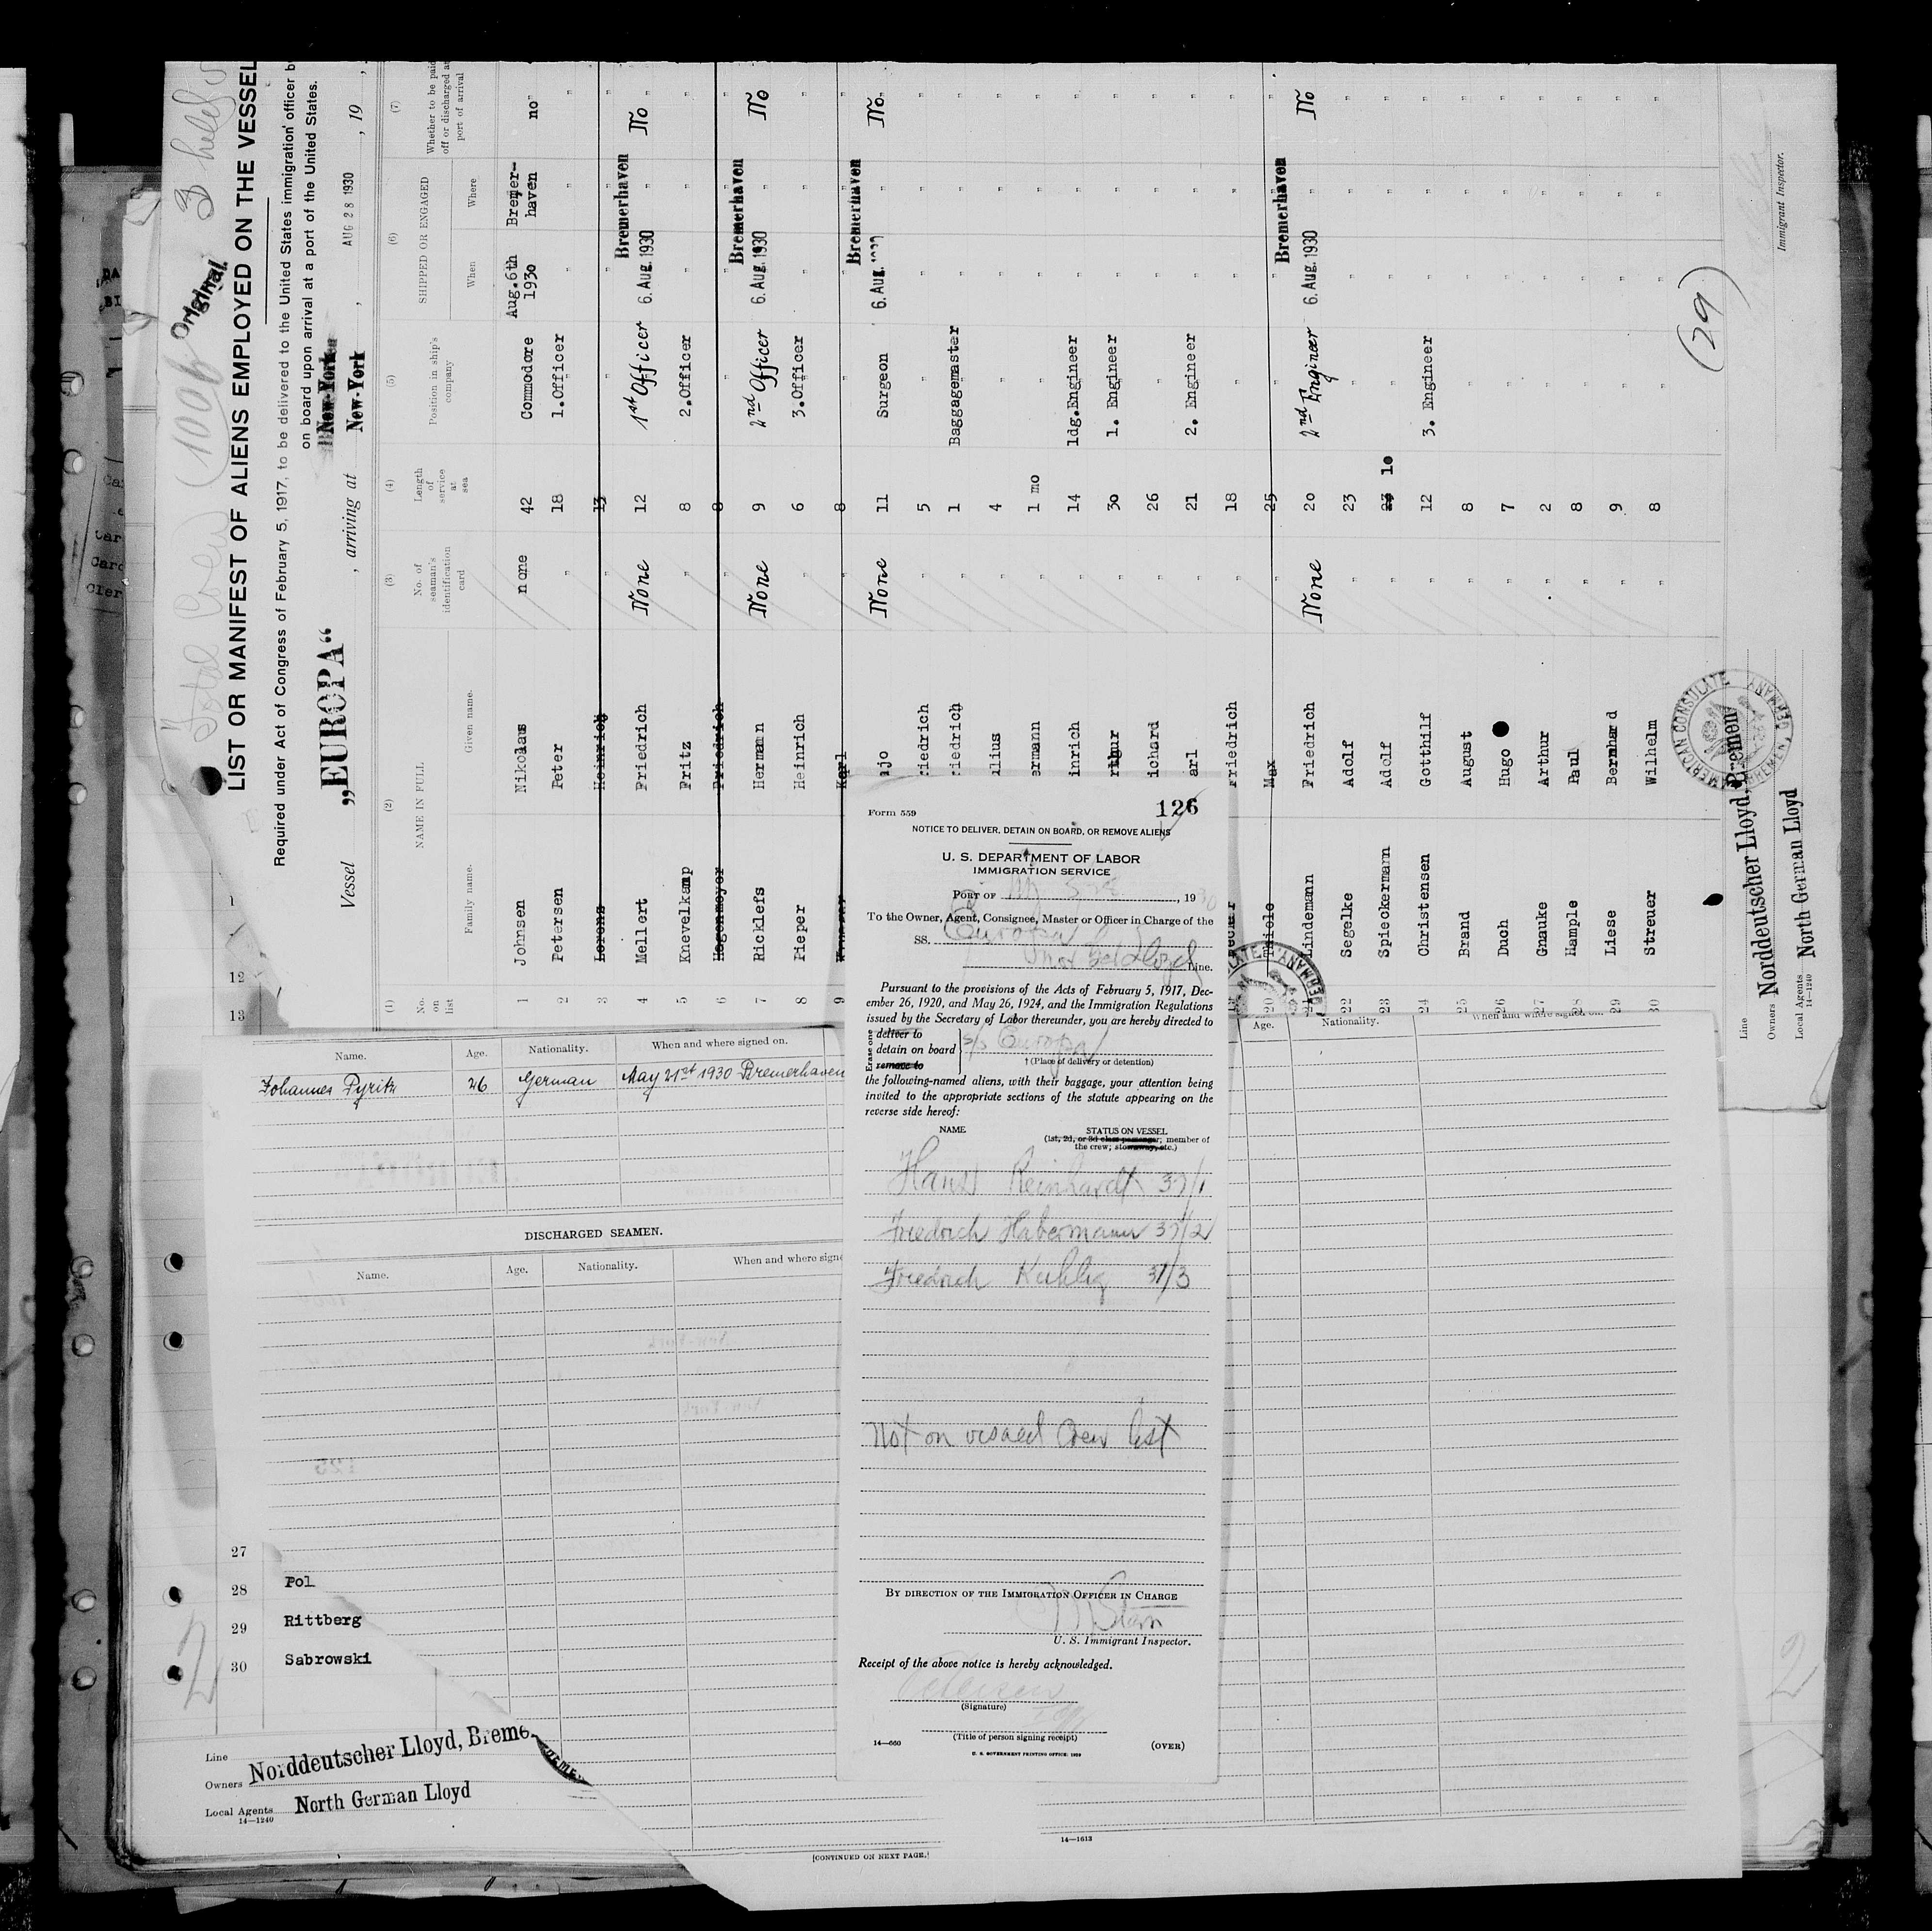 Total Crew
3 held
Original
LIST OR MANIFEST OF ALIENS EMPLOYED ON THE VESSEL
Required under Act of Congress of February 5, 1917, to be delivered to the United States immigration officer by
on board upon arrival at a port of the United States.
New-York
Vessel „EUROPA“, arriving at New-York, AUG 28 1930, 19
(1) (2) (3) (4) (5) (6) (7)
No. on list
NAME IN FULL
Family name. Given name.
No. of seaman's identification card
Length of service at sea
Position in ship's company
SHIPPED OR ENGAGED
When Where
Whether to be paid off or discharged at port of arrival
1 Johnsen Nikolaus none 42 Commodore Aug. 6th 1930 Bremerhaven no
2 Petersen Peter " 18 1.Officer " " "
3 Lorenz Heinrich " 13 " " " "
4 Mellert Friedrich None 12 1st Officer 6. Aug. 1930 Bremerhaven " No
5 Knevelkamp Fritz " 8 2.Officer " " "
6 Hagenmeyer Friedrich " 8 " " " "
7 Ricklefs Hermann None 9 2nd Officer 6. Aug. 1930 Bremerhaven " No
8 Pieper Heinrich " 6 3.Officer " " "
9 Karl " 8 " " " "
ajo None 11 Surgeon 6. Aug. Bremerhaven " No.
riedrich " 5 " " " "
riedrich " 1 Baggagemaster " " "
ulius " 4 " " " "
ermann " 1 mo " " " "
inrich " 14 ldg.Engineer " " "
rthur " 30 1. Engineer " " "
ichard " 26 " " " "
arl " 21 2. Engineer " " "
Friedrich " 18 " " " "
20 Thiele Max " 25 " " " "
21 Lindemann Friedrich None 20 2nd Engineer 6. Aug. 1930 Bremerhaven " No
22 Segelke Adolf " 23 " " " "
23 Spieckermann Adolf " 23 10 " " " "
24 Christensen Gotthilf " 12 3. Engineer " " "
25 Brand August " 8 " " " "
26 Duch Hugo " 7 " " " "
27 Gnauke Arthur " 2 " " " "
28 Hample Paul " 8 " " " "
29 Liese Bernhard " 9 " " " "
30 Streuer Wilhelm " 8 " " " "
(29)
Line
Owners Norddeutscher Lloyd, Bremen
Local Agents North German Lloyd
14—1240
Immigrant Inspector.
AMERICAN CONSULATE
BREMEN, GERMANY
12
13
Name. Age. Nationality. When and where signed on.
Johannes Pyritz 26 German May 21st 1930 Bremerhaven
DISCHARGED SEAMEN.
Name. Age. Nationality. When and where signe
Age. Nationality. When and where signed on.
27
28 Pol
29 Rittberg
30 Sabrowski
2
Line
Owners Norddeutscher Lloyd, Breme
Local Agents North German Lloyd
14—1240
[CONTINUED ON NEXT PAGE.]
14—1613
2
Form 559
126
NOTICE TO DELIVER, DETAIN ON BOARD, OR REMOVE ALIENS
U. S. DEPARTMENT OF LABOR
IMMIGRATION SERVICE
PORT OF , 1930
To the Owner, Agent, Consignee, Master or Officer in Charge of the
SS. Europa
Lloyd Line.
Pursuant to the provisions of the Acts of February 5, 1917, Dec-
ember 26, 1920, and May 26, 1924, and the Immigration Regulations
issued by the Secretary of Labor thereunder, you are hereby directed to
Erase one
deliver to
detain on board
remove to
S/S Europa
† (Place of delivery or detention)
the following-named aliens, with their baggage, your attention being
invited to the appropriate sections of the statute appearing on the
reverse side hereof:
NAME STATUS ON VESSEL
(1st, 2d, or 3d class passenger; member of
the crew; stowaway, etc.)
Hans Reinhardt 37/1
Friedrich Habermann 37/2
Friedrich Kuhlig 37/3
Not on visaed Crew list
BY DIRECTION OF THE IMMIGRATION OFFICER IN CHARGE
Stern
U. S. Immigrant Inspector.
Receipt of the above notice is hereby acknowledged.
Petersen
(Signature)
(Title of person signing receipt)
14—660
U. S. GOVERNMENT PRINTING OFFICE: 1929
(OVER)